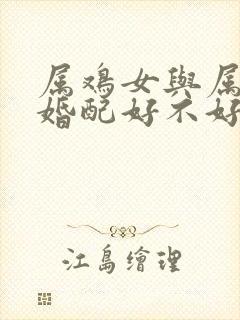 属鸡女與属
婚配好不好
江島繪理